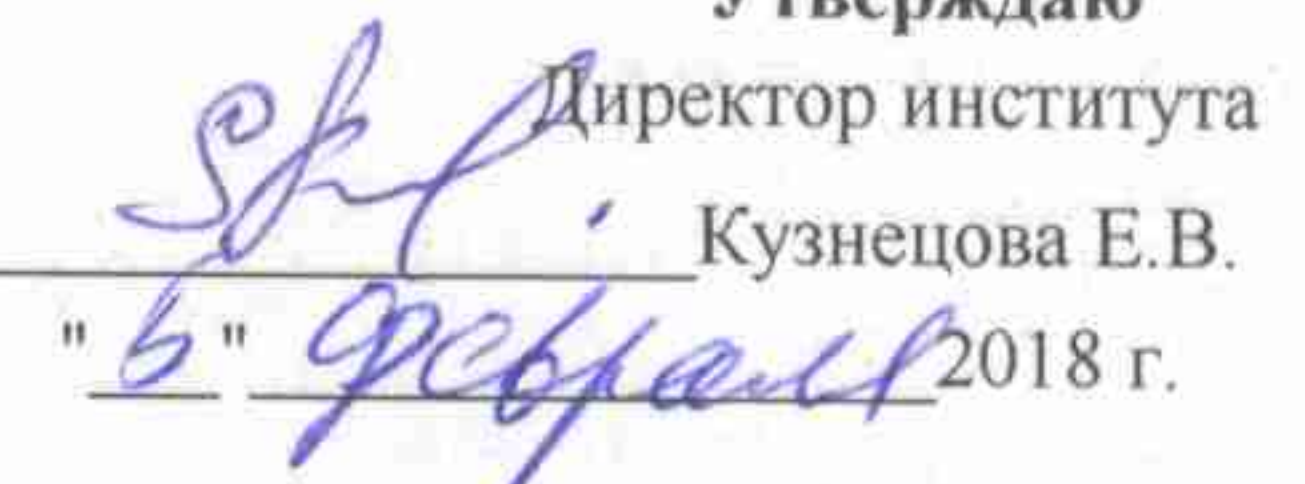 Утверждаю
Директор института
Кузнецова Е.В.
"6" февраля 2018 г.